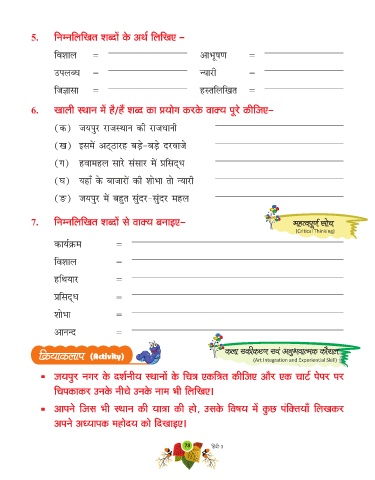 5. निम्नलिखित शब्दों के अर्थ लिखिए –
विशाल = आभूषण =
उपलब्ध – न्यारी –
जिज्ञासा = हस्तलिखित =
6. खाली स्थान में है/हैं शब्द का प्रयोग करके वाक्य पूरे कीजिए–
(क) जयपुर राजस्थान की राजधानी
(ख) इसमें अट्ठारह बड़े-बड़े दरवाजे
(ग) हवामहल सारे संसार में प्रसिद्ध
(घ) यहाँ के बाजारों की शोभा तो न्यारी
(ङ) जयपुर में बहुत सुंदर-सुंदर महल
7. निम्नलिखित शब्दों से वाक्य बनाइए–
महत्वपूर्ण सोच
(Critical Thinking)
कार्यक्रम =
विशाल –
हथियार =
प्रसिद्ध =
शोभा –
आनन्द =
क्रियाकलाप (Activity)
कला एकीकरण एवं अनुभवात्मक कौशल
(Art Integration and Experiential Skill)
जयपुर नगर के दर्शनीय स्थानों के चित्र एकत्रित कीजिए और एक चार्ट पेपर पर
चिपकाकर उनके नीचे उनके नाम भी लिखिए।
आपने जिस भी स्थान की यात्रा की हो, उसके विषय में कुछ पंक्तियाँ लिखकर
अपने अध्यापक महोदय को दिखाइए।
78 हिंदी